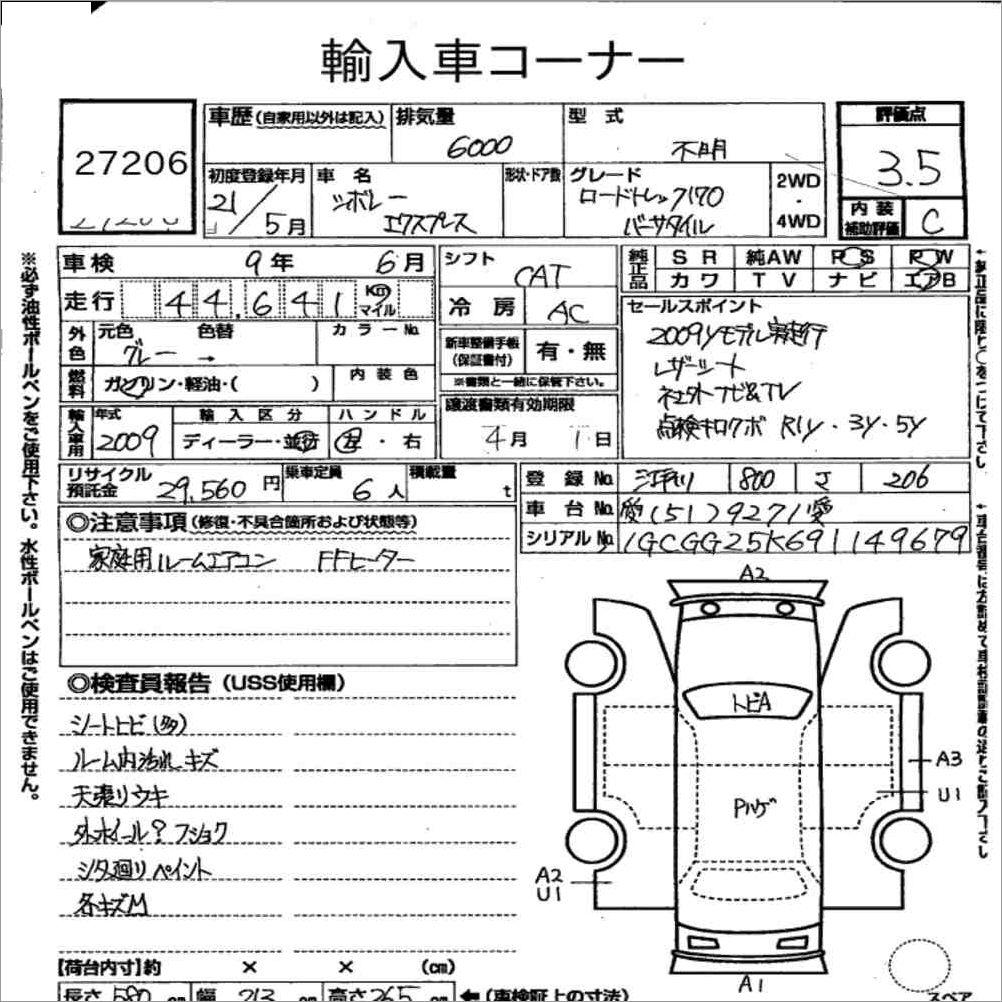 輸入車コーナー
27206
車歴(自家用以外は記入) 排気量 6000
型式 不明
評価点 3.5
初度登録年月 21/5月
車名 シボレー エクスプレス
形状・ドア数
グレード ロードトレック170 バーサタイル
2WD・4WD
内装補助評価 C
車検 9年 6月
シフト CAT
純正品 SR 純AW PS PW
カワ TV ナビ エアB
走行 44,641 Km マイル
冷房 AC
セールスポイント
2009yモデル実走行
レザーシート
社外ナビ&TV
点検キロクボ R1y・3y・5y
外色 元色 色替 カラーNo.
グレー →
新車整備手帳(保証書付) 有・無
※書類と一緒に保管下さい。
燃料 ガソリン・軽油・( )
内装色
譲渡書類有効期限
4月 1日
輸入車用 年式 輸入区分 ハンドル
2009 ディーラー・並行 左・右
リサイクル預託金 29,560円
乗車定員 6人
積載量 t
登録No. 800 J 206
車台No. 愛(51)9271愛
シリアルNo. 1GCGG25K691149679
◎注意事項(修復・不具合箇所および状態等)
家庭用ルームエアコン FFヒーター
◎検査員報告(USS使用欄)
シートヒビ(多)
ルーム内汚れ キズ
天張りウキ
外ホイール? フショク
シタ廻りペイント
各キズM
A2
トビA
A3
U1
Pハゲ
A2
U1
A1
【荷台内寸】約 × × (cm)
長さ 580 cm 幅 213 cm 高さ 265 cm ←(車検証上の寸法)
スペア
※必ず油性ボールペンをご使用下さい。水性ボールペンはご使用できません。